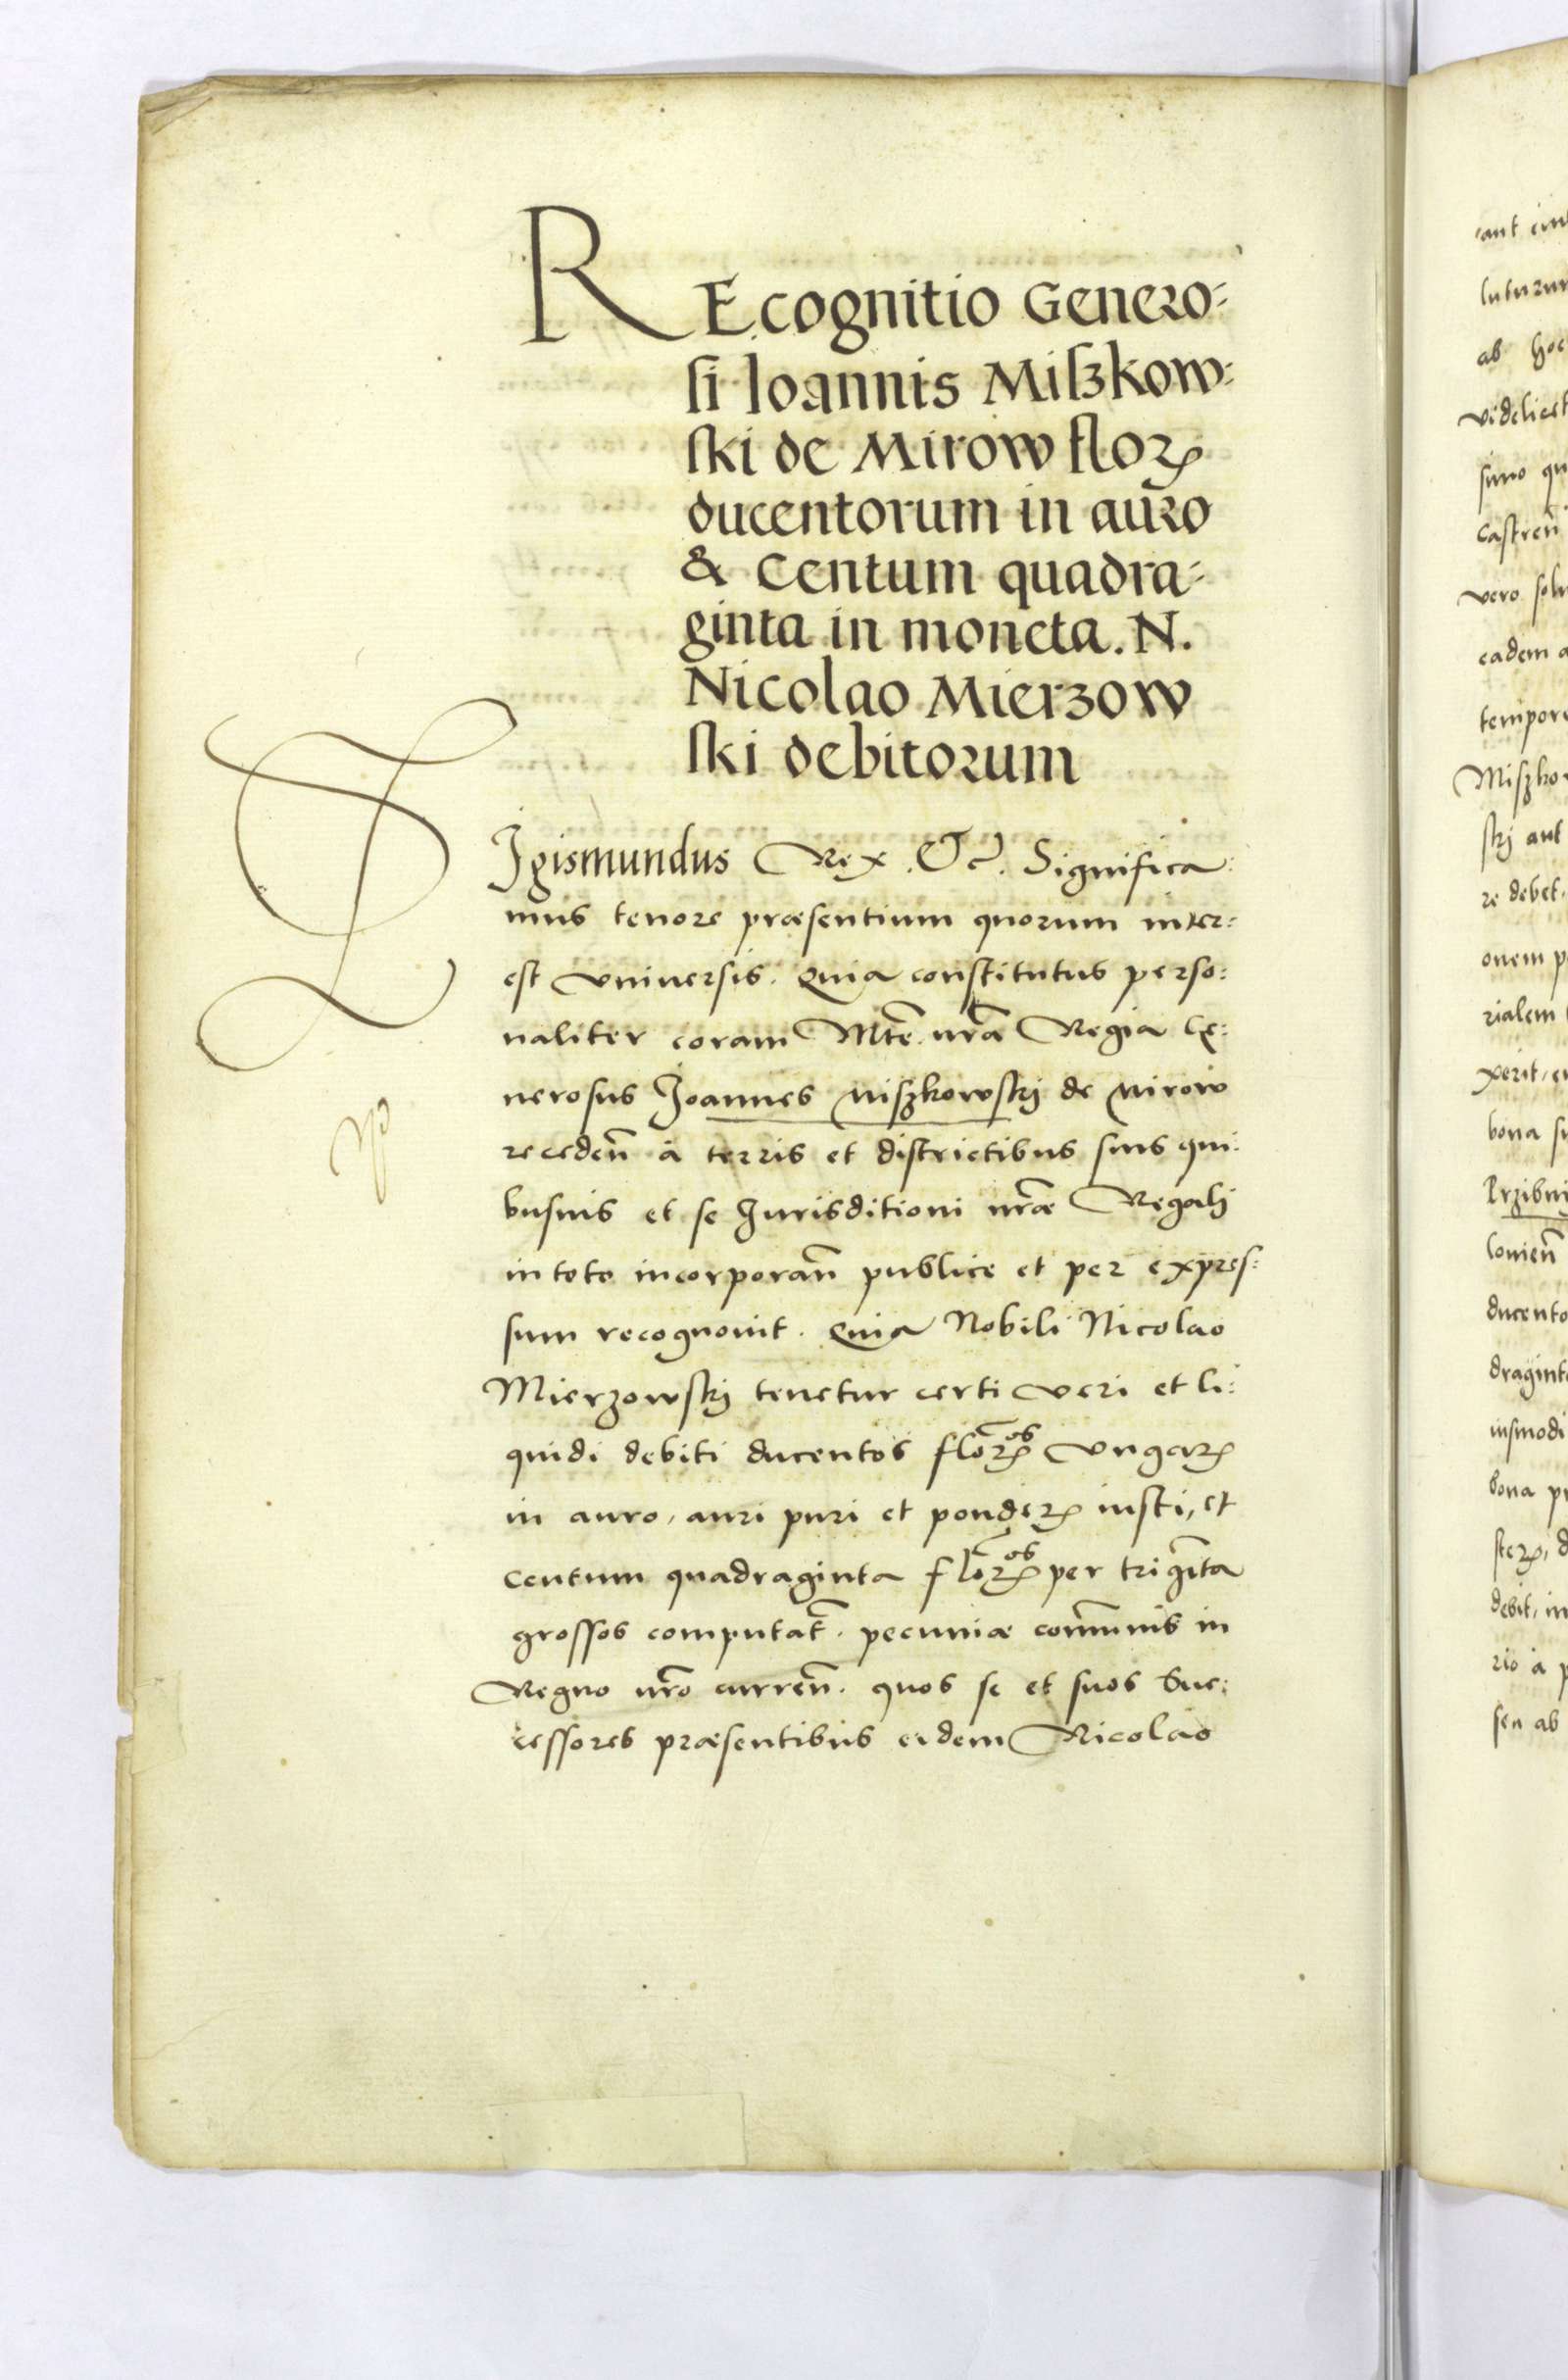 REcognitio Genero:
ſi Ioannis Miſzkow:
ſki de Mirow floꝝ
ducentorum in auro
& Centum quadra:
ginta in moneta. N.
Nicolao Mierzow
ſki debitorum
SIgismundus Rex. Etc̃. Significa:
mus tenore præsentium quorum inter:
est vniuersis. Quia constitutus perso:
naliter coram Mte͂ nr͂a Regia Ge:
nerosus Joannes Miszkowskij de Mirow
receden͂ à terris et districtibus suis qui:
busuis et se Jurisditioni nr͂æ Regalj
in toto incorporan͂ publice et per expres:
sum recognouit. Quia Nobili Nicolao
Mierzowskij tenetur certi veri et li:
quidi debiti ducentos flor͂os vngar͂
in auro, auri puri et ponder͂ iusti, et
centum quadraginta flor͂os per trigi͂ta
grossos computat͂. pecuniæ com͂unis in
Regno nr͂o curren͂. quos se et suos Suc:
cessores præsentibus eidem Nicolao
ab hoc
videlicet
castren͂
vero
eadem
re debet.
rialem
xerit,
bona
louien͂
iusmodi
bona
debit,
rio à
seu ab